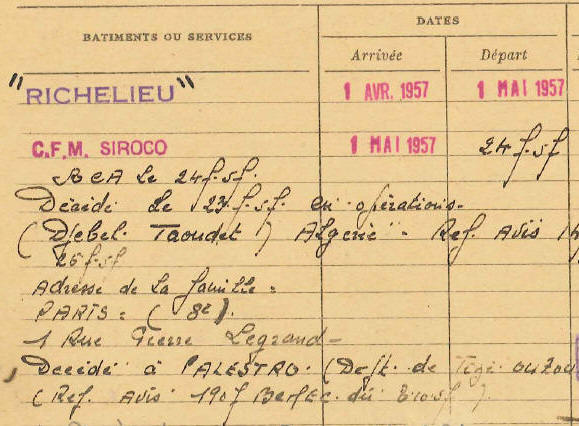 BATIMENTS OU SERVICES
DATES
Arrivée Départ
"RICHELIEU" 1 AVR. 1957 1 MAI 1957
C.F.M. SIROCO 1 MAI 1957 24.7.57
RCA le 24.7.57.
Décédé le 23.7.57. en opérations.
(Djebel. Taoudet) Algérie. Ref. Avis
26.7.57
Adresse de la famille :
PARIS : (8e).
1 Rue Pierre Legrand
Décédé à PALESTRO. (Dept. de Tizi ouzou
(Ref. Avis 1907 du